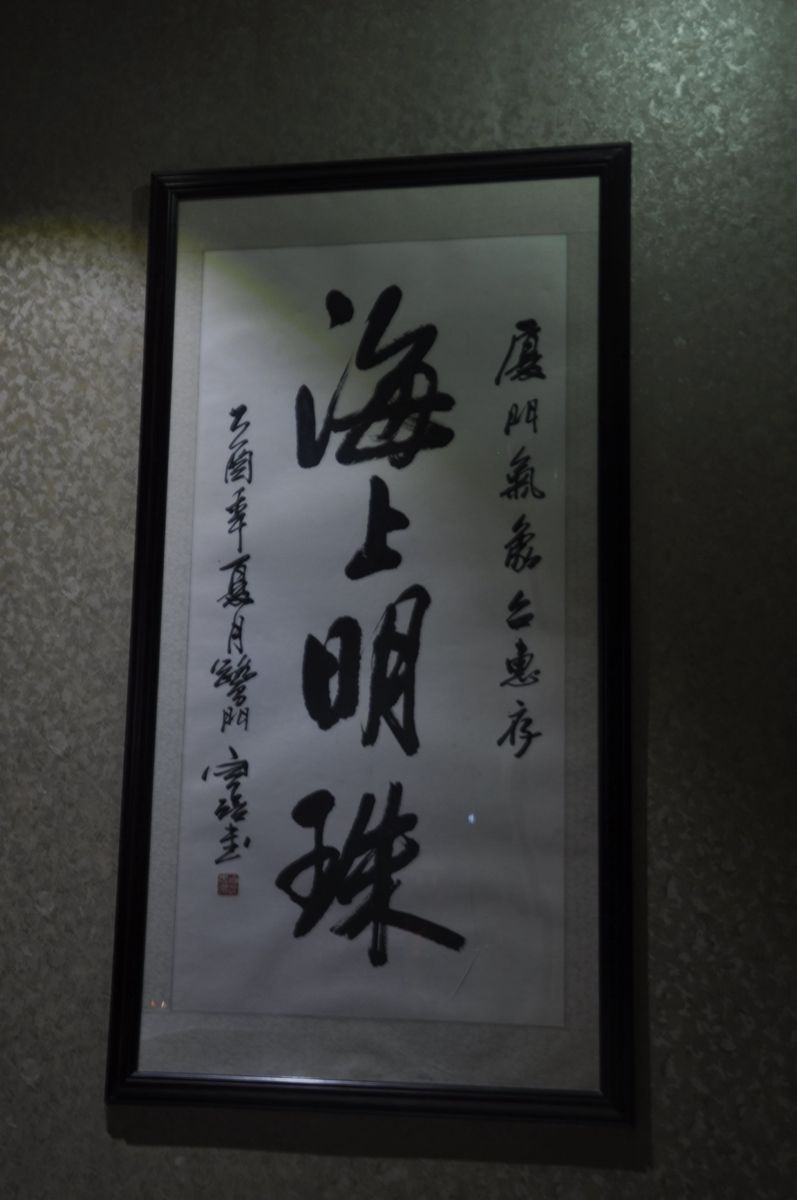 厦門氣象台惠存
海上明珠
乙酉年夏月鷺門書